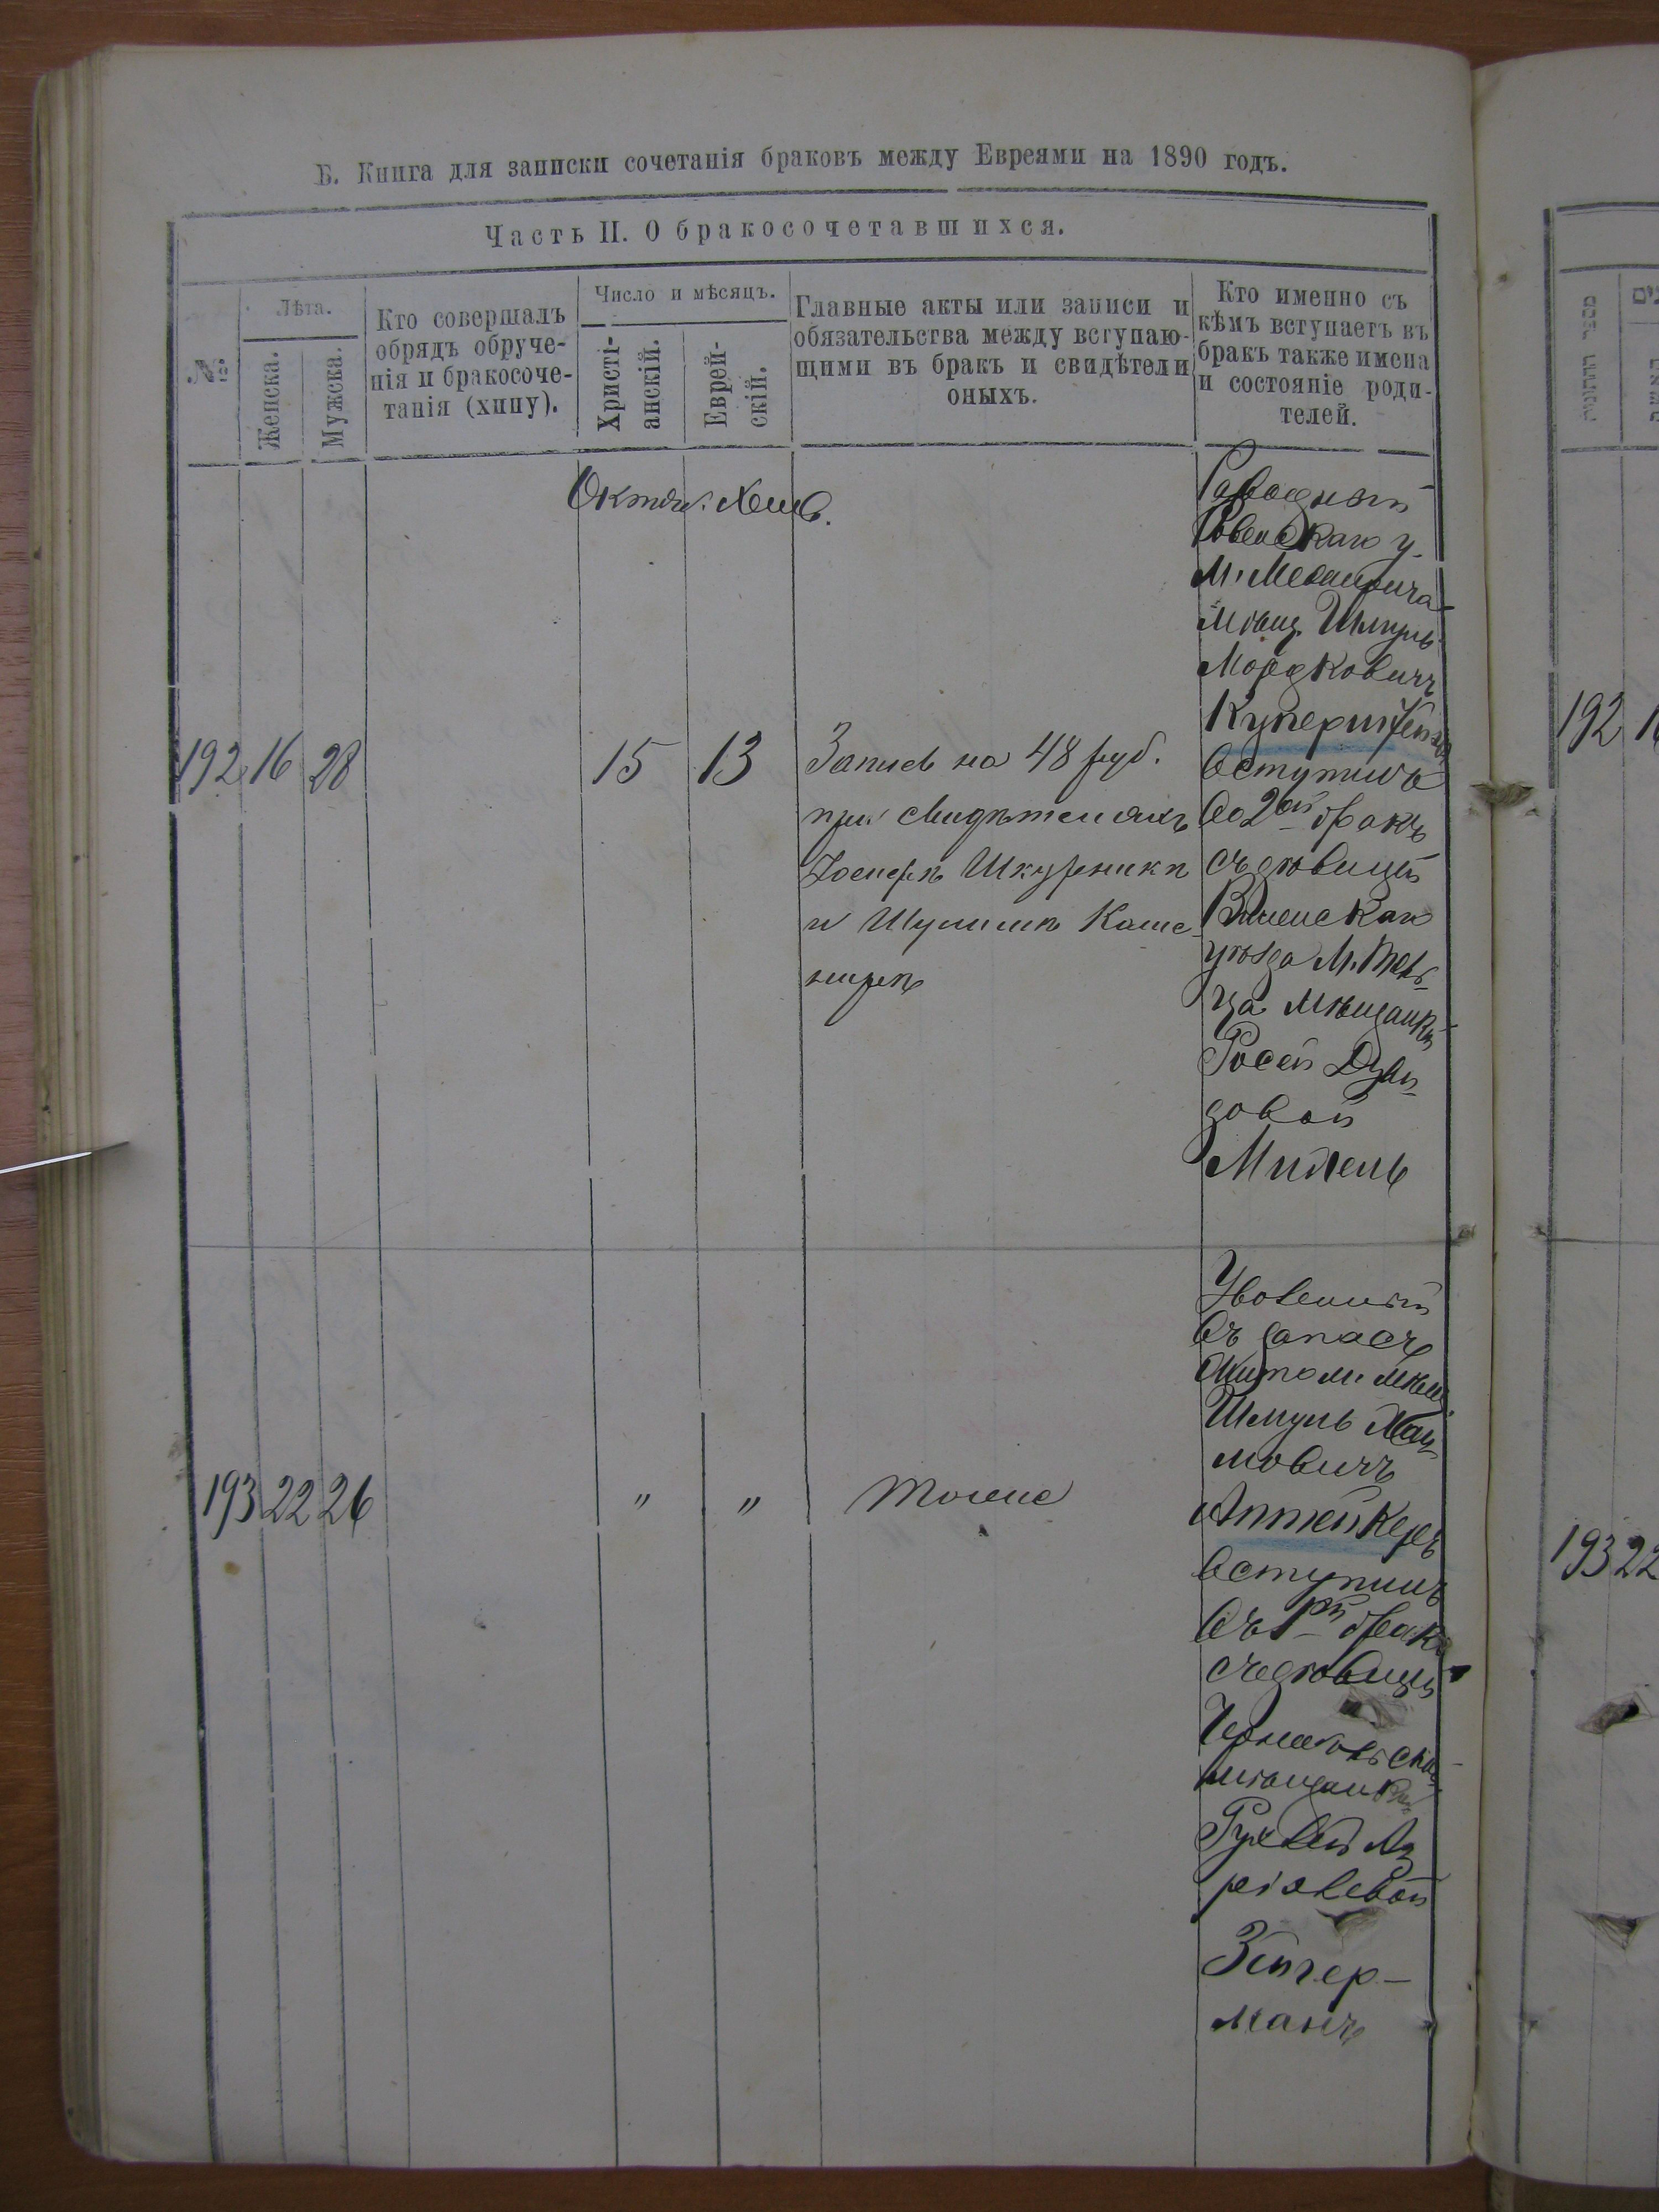 Б. Книга для записки сочетанія браковъ между Евреями на 1890 годъ.
Часть II. О бракосочетавшихся.
№
Лѣта.
Женска.
Мужска.
Кто совершалъ
обрядъ обруче-
нія и бракосоче-
танія (хипу).
Число и мѣсяцъ.
Христі-
анскій.
Еврей-
скій.
Главные акты или записи и
обязательства между вступаю-
щими въ бракъ и свидѣтели
оныхъ.
Кто именно съ
кѣмъ вступаетъ въ
бракъ также имена
и состояніе роди-
телей.
Октяб. Хешв.
192 16 28
15 13
Запись на 48 руб.
при свидѣтеляхъ
Іосифѣ Шкурникѣ
и Шулимѣ Каме-
нирѣ
Разводный
Ровенскаго у.
М. Межирича
мѣщ. Шмуль
Мордковичъ
вступилъ
во 2ой бракъ
съ дѣвицей
уѣзда М.
ца мѣщанкой
Росей Дуви-
довой
193 22 26
" "
Тоже
Уволенный
въ запасъ
Житом. мѣщ.
Шмуль Хаи-
мовичъ
Аптейкеръ
вступилъ
въ 1ый бракъ
съ дѣвицей
мѣщанкой
Рухлей Аз
ріелевой
Зингер-
манъ
192 1
193 22